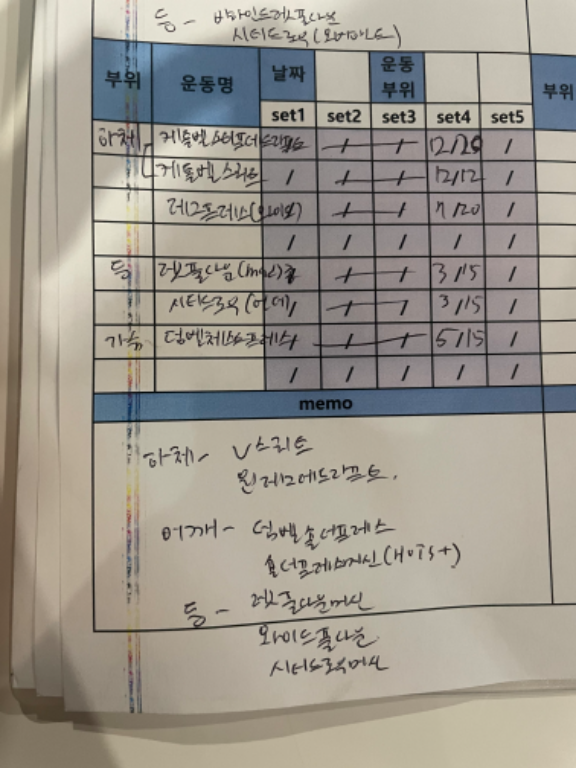 등 - 바바인드랫풀다운
시티드로우(오버매드)
부위 운동명 날짜 운동 부위 부위
set1 set2 set3 set4 set5
하체 케틀벨스티프데드리프트 / / 12/20 /
케틀벨스쿼트 / / / 12/12 /
레그프레스(와이드) / / 7/20 /
/ / / / /
등 랫풀다운(mag) / / 3/15 /
시티드로우(언더) / / / 3/15 /
가슴 덤벨체스트프레스 / / / 5/15 /
/ / / / /
memo
하체 - V스쿼트
원레그데드리프트.
어깨 - 덤벨숄더프레스
숄더프레스머신(HOIST)
등 - 랫풀다운머신
와이드풀다운
시티드로우머신